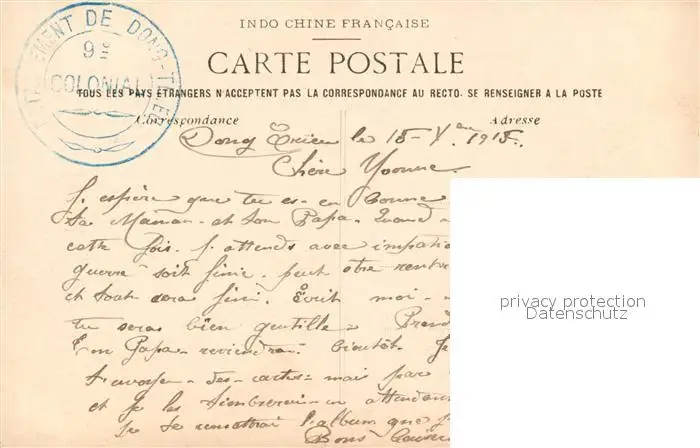 INDO CHINE FRANÇAISE
CARTE POSTALE
TOUS LES PAYS ÉTRANGERS N'ACCEPTENT PAS LA CORRESPONDANCE AU RECTO. SE RENSEIGNER A LA POSTE
DE DONG-TRIEU
9e
COLONIAL
Correspondance
Adresse
Dong Trieu le 15 - X 1915.
Chère Yvonne
J. espère que tu es en bonne
ta Maman et ton Papa. Quand
cette fois. J. attends avec impatie
guerre soit finie. peut être rentre
et tout sera fini. Écrit moi
tu seras bien gentille. Prend
Ton Papa reviendra bientôt. Je
t'envoyer des cartes mais par
et je les timbrerai en attendant
je te remettrai l'album que j
Bons baisers
privacy protection
Datenschutz